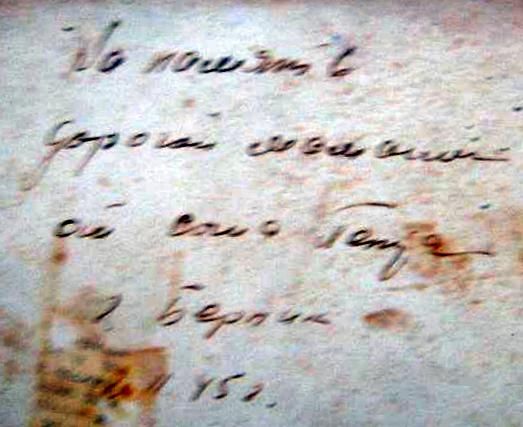 На память
дорогой мамаше
от сына
г Берлин
45г.